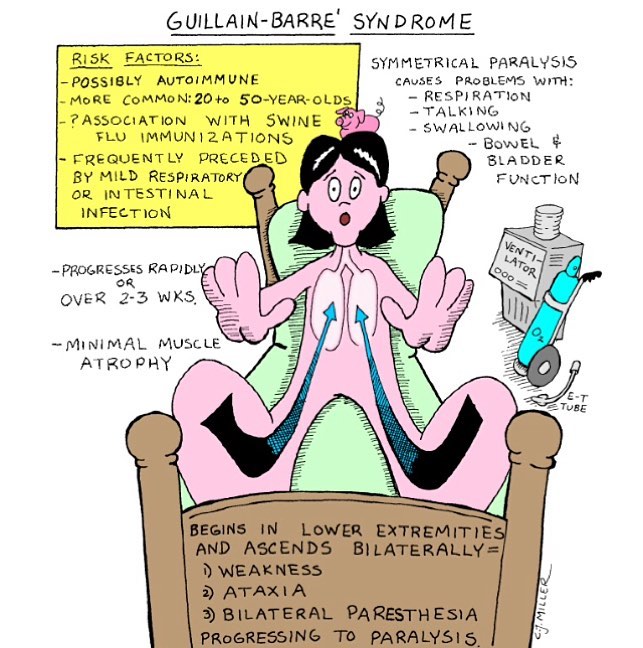 GUILLAIN-BARRE' SYNDROME
RISK FACTORS:
-POSSIBLY AUTOIMMUNE
-MORE COMMON: 20 to 50-YEAR-OLDS
-?ASSOCIATION WITH SWINE
FLU IMMUNIZATIONS
- FREQUENTLY PRECEDED
BY MILD RESPIRATORY
OR INTESTINAL
INFECTION
SYMMETRICAL PARALYSIS
CAUSES PROBLEMS WITH:
- RESPIRATION
- TALKING
- SWALLOWING
- BOWEL &
BLADDER
FUNCTION
-PROGRESSES RAPIDLY
OR
OVER 2-3 WKS.
-MINIMAL MUSCLE
ATROPHY
VENTI-
LATOR
O₂
E-T
TUBE
BEGINS IN LOWER EXTREMITIES
AND ASCENDS BILATERALLY=
1) WEAKNESS
2) ATAXIA
3) BILATERAL PARESTHESIA
PROGRESSING TO PARALYSIS.
C.J. MILLER